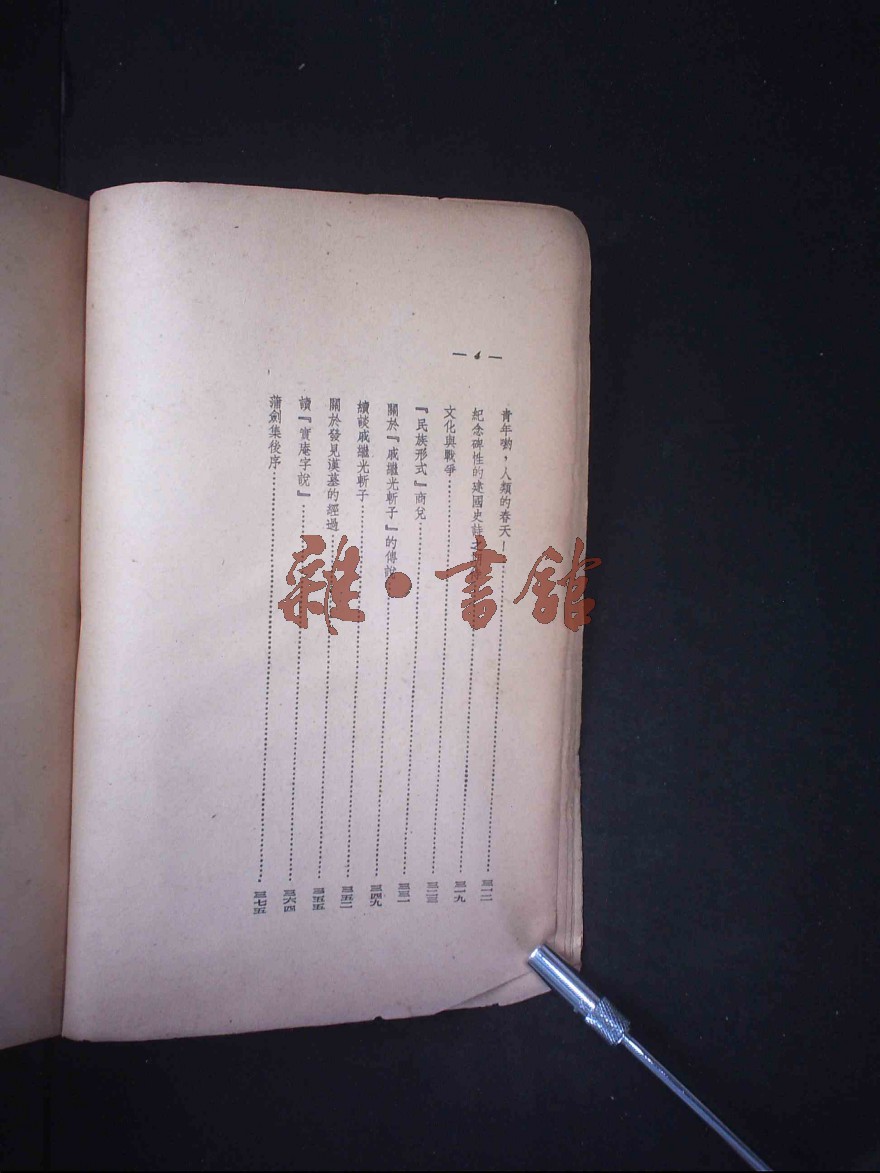 青年喲，人類的春天！……三一二
紀念碑性的建國史詩之……三一九
文化與戰爭……三二三
『民族形式』商兌……三三一
關於『戚繼光斬子』的傳說……三四九
續談戚繼光斬子……三五二
關於發見漢墓的經過……三五五
讀『實庵字說』……三六四
蒲劍集後序……三七五
雜·書館